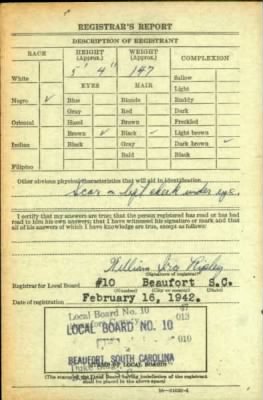 REGISTRAR'S REPORT
DESCRIPTION OF REGISTRANT
RACE HEIGHT (Approx.) WEIGHT (Approx.) COMPLEXION
5' 4" 147
White Sallow
EYES HAIR Light
Negro ✓ Blue Blonde Ruddy
Gray Red Dark
Oriental Hazel Brown Freckled
Brown ✓ Black ✓ Light brown
Indian Black Gray Dark brown ✓
Bald Black
Filipino
Other obvious physical characteristics that will aid in identification
Scar on left cheek under eye.
I certify that my answers are true; that the person registered has read or has had
read to him his own answers; that I have witnessed his signature or mark and that
all of his answers of which I have knowledge are true, except as follows:
William
(Signature of registrar)
Registrar for Local Board #10 Beaufort S.C.
(Number) (City or county) (State)
Date of registration February 16, 1942.
Local Board No. 10 47
013
LOCAL BOARD NO. 10
BEAUFORT, SOUTH CAROLINA
(STAMP OF LOCAL BOARD)
(The stamp of the Local Board having jurisdiction of the registrant
shall be placed in the above space)